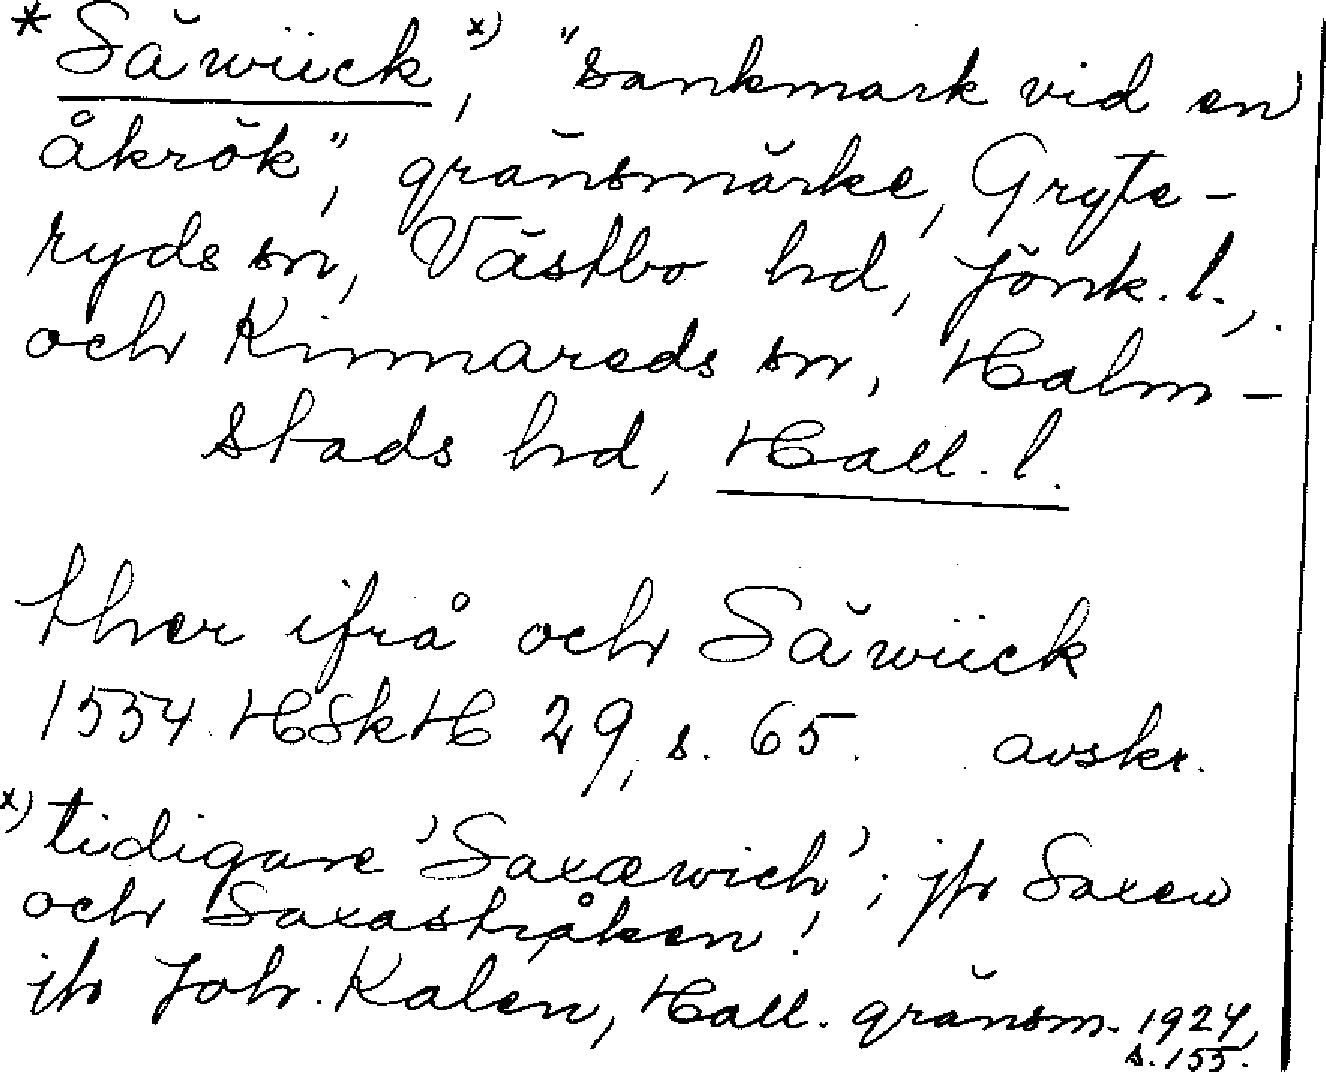 *Säwiick,ˣ⁾ "sankmark vid en
åkrök", gränsmärke, Gryte-
ryds sn, Västbo hd, Jönk. l.,
och Kinnareds sn, Halm-
stads hd, Hall. l.
ther ifrå och Säwiick
1554 HSkH 29, s. 65. avskr.
ˣ⁾ tidigare 'Saxæwich'; jfr Saxen
och Saxastråken!
jfr Joh. Kalen, Hall. gränsm. 1924,
s. 155.